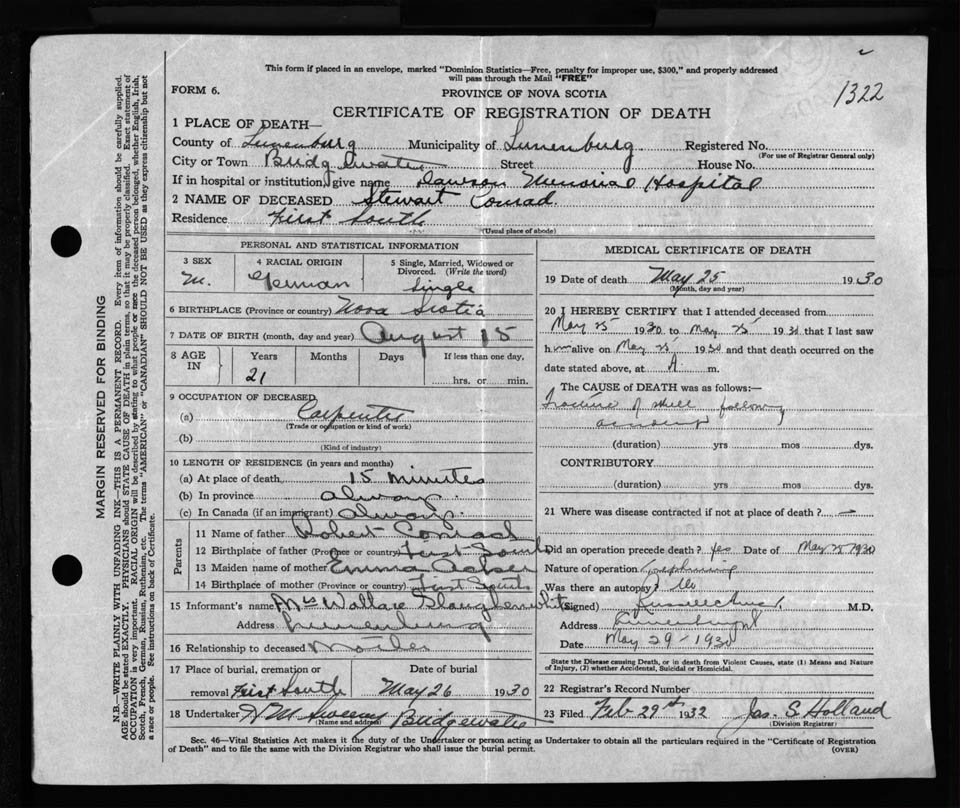 This form if placed in an envelope, marked "Dominion Statistics—Free, penalty for improper use, $300," and properly addressed
will pass through the Mail "FREE"
FORM 6.
PROVINCE OF NOVA SCOTIA
1322
CERTIFICATE OF REGISTRATION OF DEATH
1 PLACE OF DEATH—
County of Lunenburg Municipality of Lunenburg Registered No.
(For use of Registrar General only)
City or Town Bridgewater Street House No.
If in hospital or institution, give name Dawson Memorial Hospital
2 NAME OF DECEASED Stewart Conrad
Residence First South
(Usual place of abode)
PERSONAL AND STATISTICAL INFORMATION
3 SEX 4 RACIAL ORIGIN 5 Single, Married, Widowed or
Divorced. (Write the word)
M. German Single
6 BIRTHPLACE (Province or country) Nova Scotia
7 DATE OF BIRTH (month, day and year) August 15
8 AGE IN Years Months Days If less than one day,
21 hrs. or min.
9 OCCUPATION OF DECEASED
(a) Carpenter
(Trade or occupation or kind of work)
(b)
(Kind of industry)
10 LENGTH OF RESIDENCE (in years and months)
(a) At place of death 15 minutes
(b) In province always
(c) In Canada (if an immigrant) always
Parents
11 Name of father Robert Conrad
12 Birthplace of father (Province or country) First South
13 Maiden name of mother Emma
14 Birthplace of mother (Province or country) First South
15 Informant's name Mrs Wallace Slaughenwhite
Address Lunenburg
16 Relationship to deceased Mother
17 Place of burial, cremation or Date of burial
removal First South May 26 1930
18 Undertaker H M Sweeny Bridgewater
(Name and address)
MEDICAL CERTIFICATE OF DEATH
19 Date of death May 25 1930
(Month, day and year)
20 I HEREBY CERTIFY that I attended deceased from
May 25 1930 to May 25 1930 that I last saw
him alive on May 25 1930 and that death occurred on the
date stated above, at A m.
The CAUSE of DEATH was as follows:—
Fracture of skull following
accident
(duration) yrs mos dys.
CONTRIBUTORY
(duration) yrs mos dys.
21 Where was disease contracted if not at place of death?
Did an operation precede death? Yes Date of May 25 1930
Nature of operation Trephining
Was there an autopsy? No
(Signed) M.D.
Address Lunenburg
Date May 29 - 1930
State the Disease causing Death, or in death from Violent Causes, state (1) Means and Nature
of Injury, (2) whether Accidental, Suicidal or Homicidal.
22 Registrar's Record Number
23 Filed Feb 29th 1932 Jas. S. Holland
(Division Registrar)
Sec. 46—Vital Statistics Act makes it the duty of the Undertaker or person acting as Undertaker to obtain all the particulars required in the "Certificate of Registration
of Death" and to file the same with the Division Registrar who shall issue the burial permit.
(OVER)
MARGIN RESERVED FOR BINDING
N.B.—WRITE PLAINLY WITH UNFADING INK—THIS IS A PERMANENT RECORD. Every item of information should be carefully supplied.
AGE should be stated EXACTLY. PHYSICIANS should STATE CAUSE OF DEATH in plain terms, so that it may be properly classified. Exact statement of
OCCUPATION is very important. RACIAL ORIGIN will be described by stating to what people or race the deceased person belonged, whether English, Irish,
Scotch, French, German, Russian, Ruthenian, etc. The terms "AMERICAN" or "CANADIAN" SHOULD NOT BE USED as they express citizenship but not
a race or people. See instructions on back of Certificate.